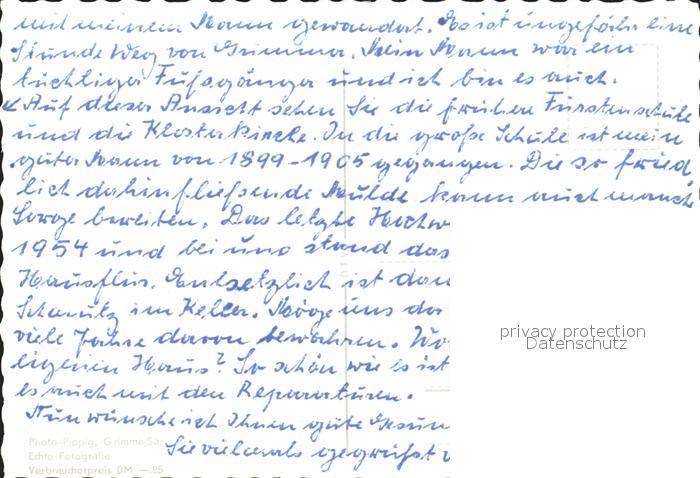 mit meinem Mann gewandert. Es ist ungefähr eine
Stunde Weg von Grimma. Mein Mann war ein
tüchtiger Fußgänger und ich bin es auch.
Auf dieser Ansicht sehen Sie die frühere Fürstenschule
und die Klosterkirche. In die große Schule ist mein
guter Mann von 1899-1905 gegangen. Die so fried
lich dahinfließende Mulde kann auch manch
Sorge bereiten. Das letzte Hochw
1954 und bei uns stand das
Hausflur. Entsetzlich ist dan
Schmutz im Keller. Möge uns das
viele Jahre davon bewahren. Wo
eigenen Haus? So schön wie es ist
es auch mit den Reparaturen.
Nun wünsche ich Ihnen gute Gesun
Sie vielmals gegrüßt v
privacy protection
Datenschutz
Photo-Pippig, Grimma Sa.
Echte Fotografie
Verbraucherpreis DM —.25